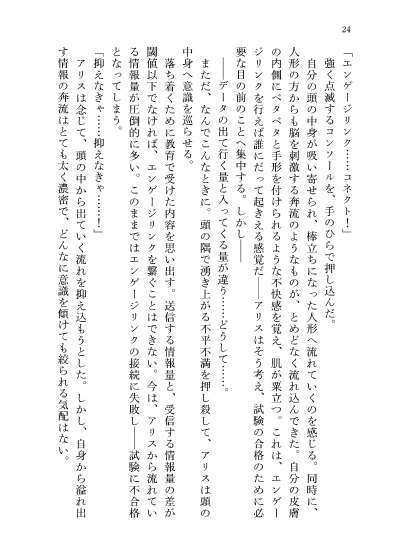 24
「エンゲージリンク……コネクト！」
強く点滅するコンソールを、手のひらで押し込んだ。
自分の頭の中身が吸い寄せられ、棒立ちになった人形へ流れていくのを感じる。同時に、
人形の方からも脳を刺激する奔流のようなものが、とめどなく流れ込んできた。自分の皮膚
の内側にベタベタと手形を付けられるような不快感を覚え、肌が粟立つ。これは、エンゲー
ジリンクを行えば誰にだって起きえる感覚だ――アリスはそう考え、試験の合格のために必
要な目の前のことへ集中する。しかし――
――データの出て行く量と入ってくる量が違う……どうして……。
まただ、なんでこんなときに。頭の隅で湧き上がる不平不満を押し殺して、アリスは頭の
中身へ意識を巡らせる。
落ち着くために教育で受けた内容を思い出す。送信する情報量と、受信する情報量の差が
閾値以下でなければ、エンゲージリンクを繋ぐことはできない。今は、アリスから流れてい
る情報量が圧倒的に多い。このままではエンゲージリンクの接続に失敗し――試験に不合格
となってしまう。
「抑えなきゃ……抑えなきゃ……！」
アリスは念じて、頭の中から出ていく流れを抑え込もうとした。しかし、自身から溢れ出
す情報の奔流はとても太く濃密で、どんなに意識を傾けても絞られる気配はない。